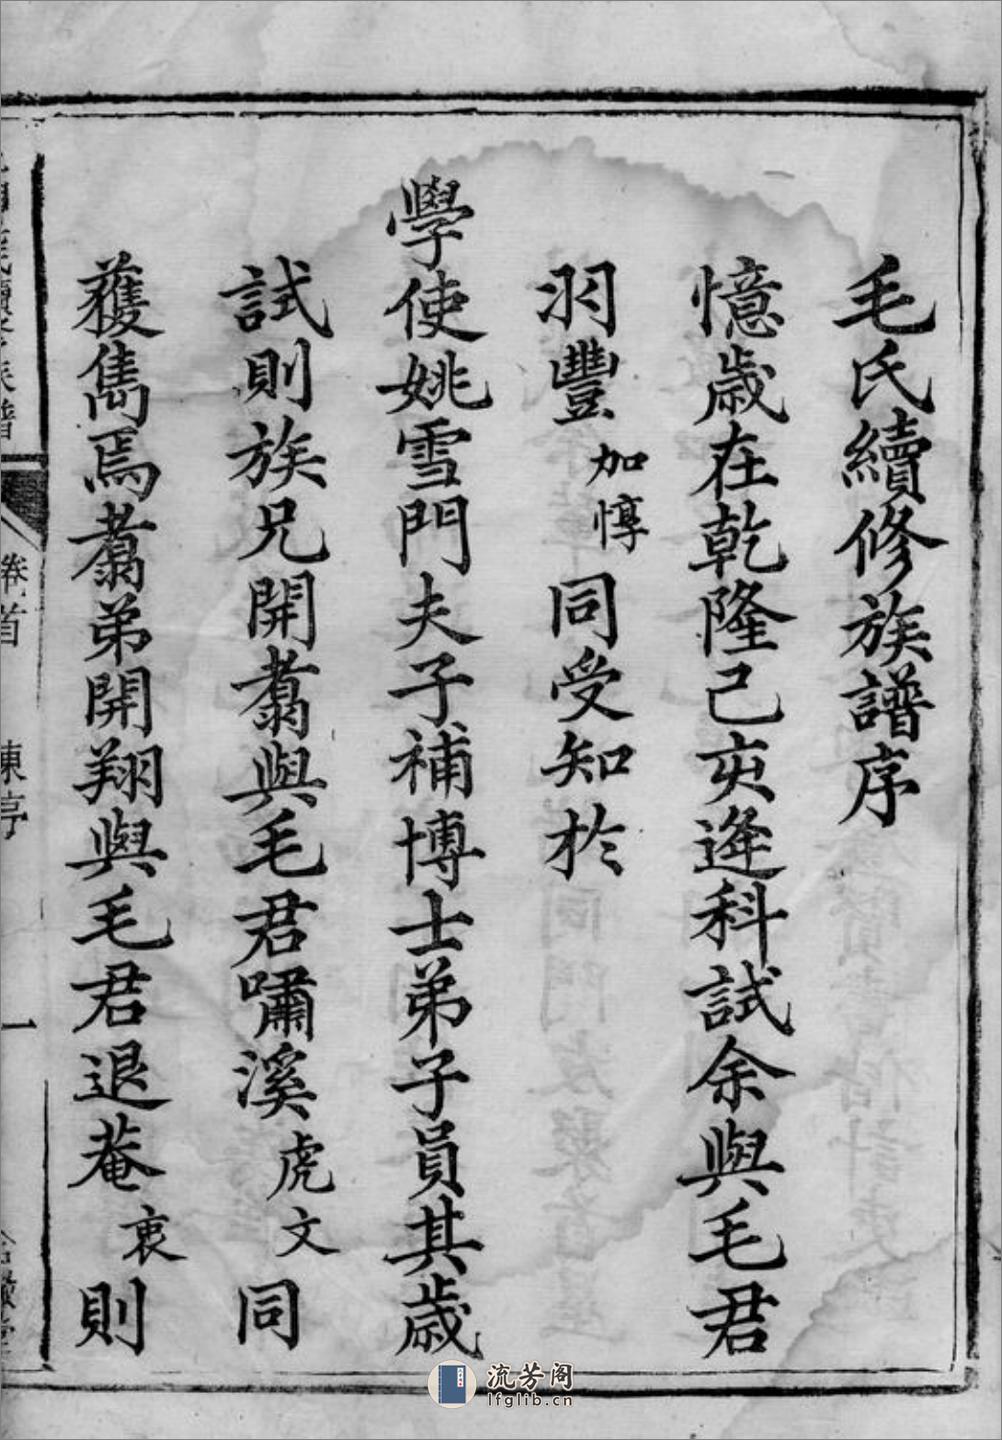 毛氏續修族譜序
憶歲在乾隆己亥逢科試余與毛君
羽豐加惇同受知於
學使姚雪門夫子補博士弟子員其歲
試則族兄開翥與毛君嘯溪虎文同
獲雋焉翥弟開翔與毛君退菴衷則
卷首
東亭
一
流芳阁
lfglib.cn